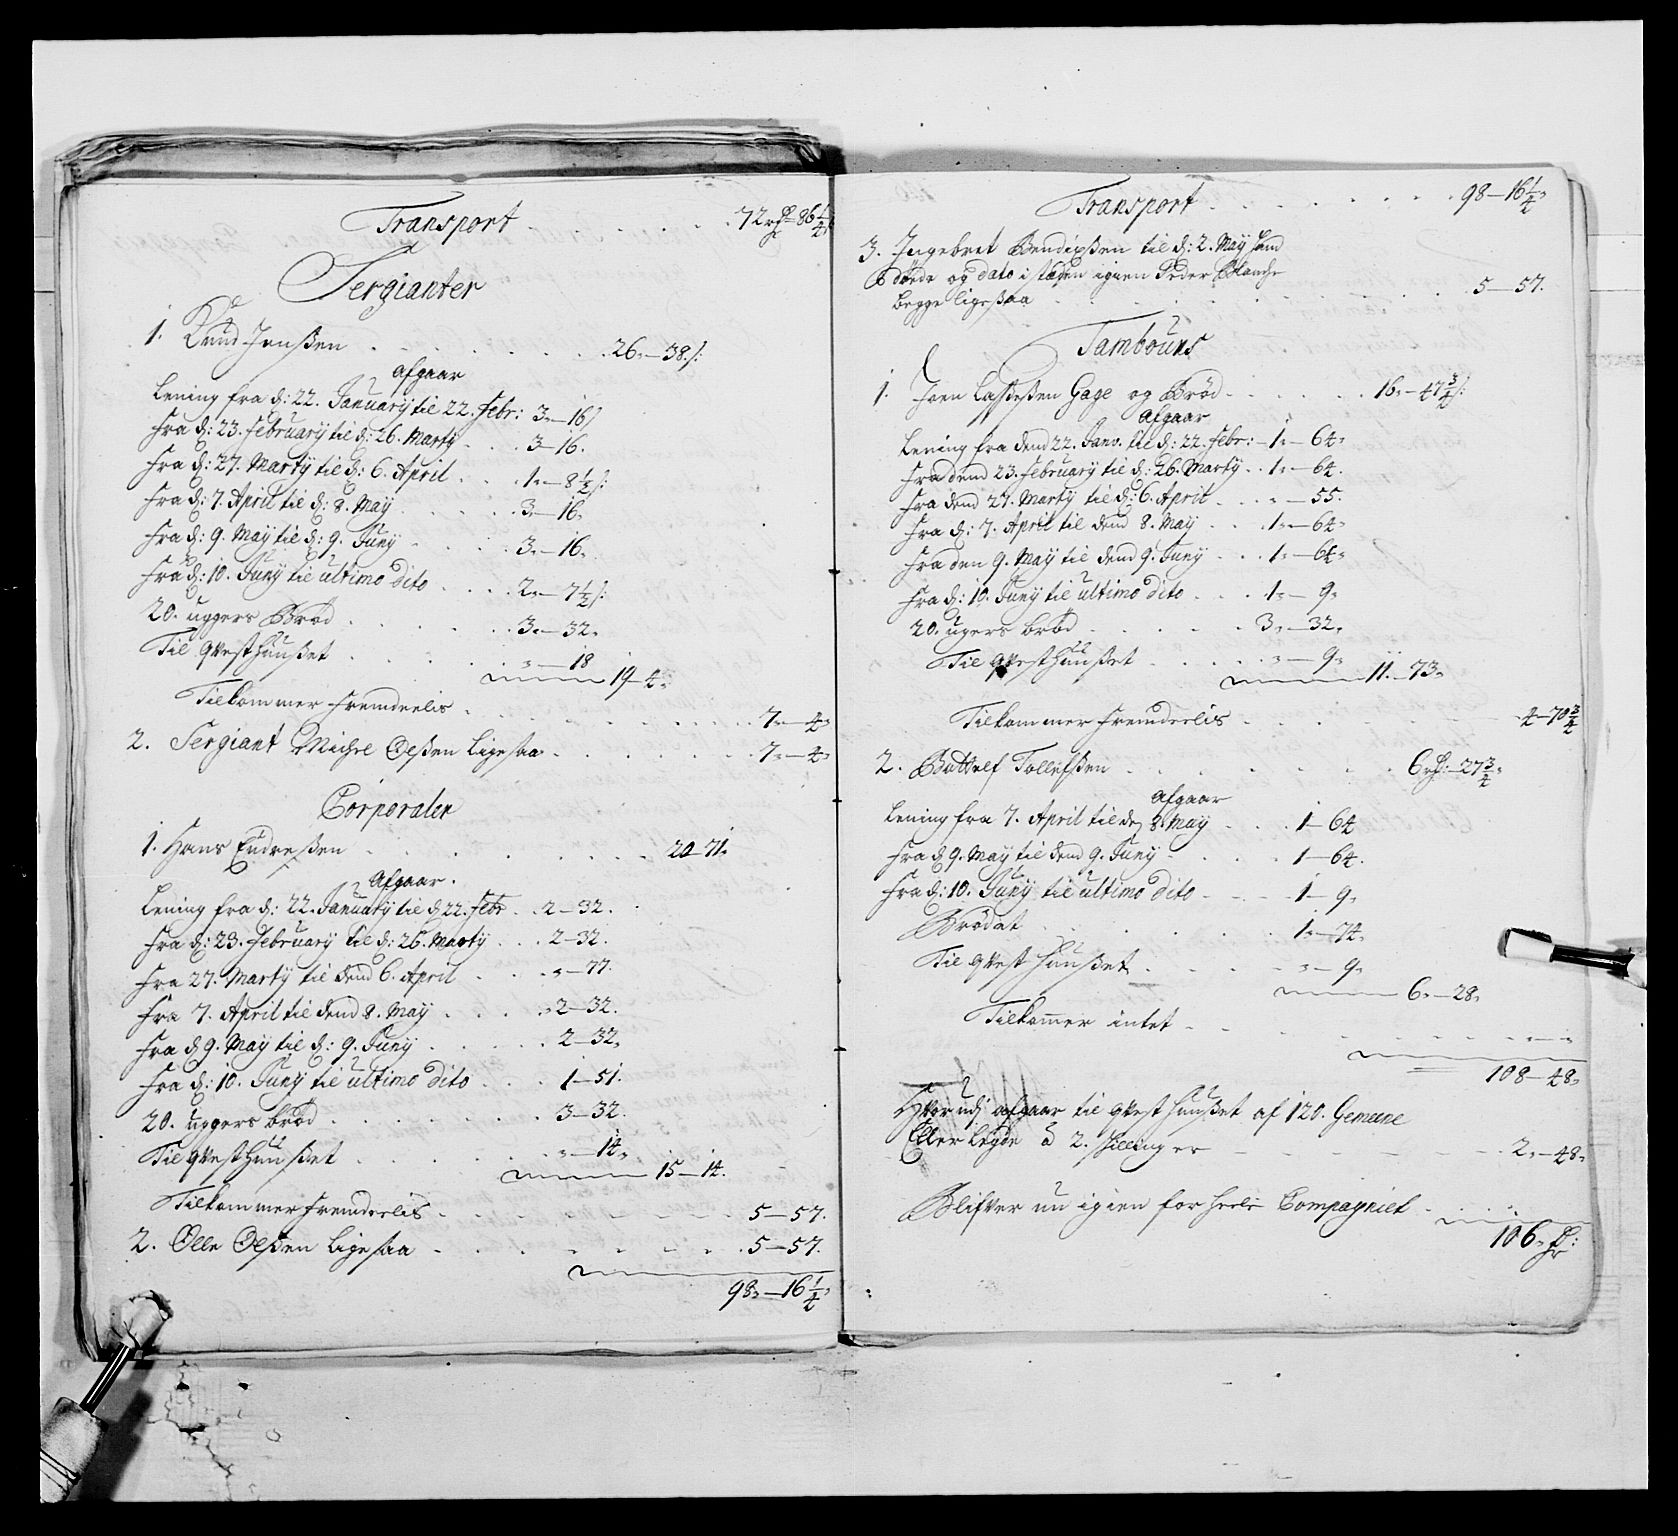 Transport . . . . . . . 72 rd 86 1/4
Sergianter
1. Knud Jenßen . . . . . . . 26„—38 ß:
Afgaar
Lening fra d: 22. January til 22. Febr: 3„—16 ß
Fra d: 23. February til d: 26. Marty . . . 3—16.
Fra d: 27. Marty til d: 6. April . . . 1„—8 1/2 ß:
Fra d: 7. April til d: 8. May . . . . . 3„—16„
Fra d: 9. May til d: 9. Juny . . . . . 3„—16„
Fra d: 10. Juny til ultimo dito . . . . 2„—7 1/2 ß:
20. uggers Brød . . . . . . 3„—32„
Til qvesthuußet . . . . . . „—18
19—4„
Tilkommer fremdeelis . . . . . . . . 7„—4„
2. Sergiant Michel Olßen ligesaa . . . . . . 7„—4„
Corporaler
1. Hans Endreßen . . . . . . . 20—71„
Afgaar.
Lening fra d: 22. January til d 22. Febr . . 2—32.
Fra d: 23. February til d: 26. Marty . . . 2—32.
Fra 27. Marty til dend 6. April . . . „—77.
Fra 7. April til dend 8. May . . . . 2—32.
Fra d 9. May til d: 9. Juny . . . . . 2—32„
Fra d: 10. Juny til ultimo dito . . . . 1—51.
20. uggers brød . . . . . . . 3—32.
Til qvesthuußet . . . . . . „—14„
15—14.
Tilkommer fremdeelis . . . . . . . . 5—57.
2. Olle Olßen ligesaa . . . . . . . . 5—57.
98„—16 1/4„
Transport . . . . . . . . 98—16 1/4„
3. Ingebret Bendixßen til d: 2. May hand
døede og dato i stæden igien Peder Blanche
begge ligesaa . . . . . . . . 5—57.
Tambours
1. Joen Laßeßen Gage og Brød . . . . . . 16„—47 3/4 ß:
Afgaar
Lening fra dend 22. Janv. til d: 22. Febr: —1„—64„
Fra dend 23. February til d: 26. Marty . . 1„—64.
Fra dend 27. Marty til d: 6. April . . . „—55.
Fra d: 7. April til dend 8. May . . . 1„—64„
Fra den 9. May til dend 9. Juny . . . 1„—64„
Fra d: 10. Juny til ultimo dito . . . 1„—9„
20. ugers brød . . . . . . 3„—32„
Til qvesthuußet . . . . . „—9„
11.—73„
Tilkommer fremdeelis . . . . . . 4—70 3/4
2. Bottolf Tollefßen . . . . . . . 6 rd:—27 3/4„
Afgaar
Lening fra 7. April til de 8. May . . . 1—64
Fra d 9. May til dend 9. Juny . . . . 1—64.
Fra d: 10. Juny til ultimo dito . . . . 1—9„
Brødet . . . . . . . 1„—74„
Til qvest huußet . . . . . „—9„
6„—28„
Tilkommer intet . . . . . . . . „—„
108—48„
Hvorudj afgaar til qvest huußet af 120. Gemeene
Eller legde à 2. skillinger . . . . . . . 2„—48„
Blifver nu igien for heele Compagniet . . . .
106„ rd: